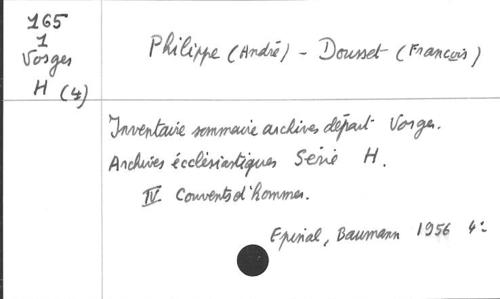 165
1
Vosges
H (4)
Philippe (André) - Dousset (Francois)
Inventaire sommaire archives départ Vosges.
Archives écclésiastiques Série H.
IV Couvents d'hommes.
Epinal, Baumann 1956 4º